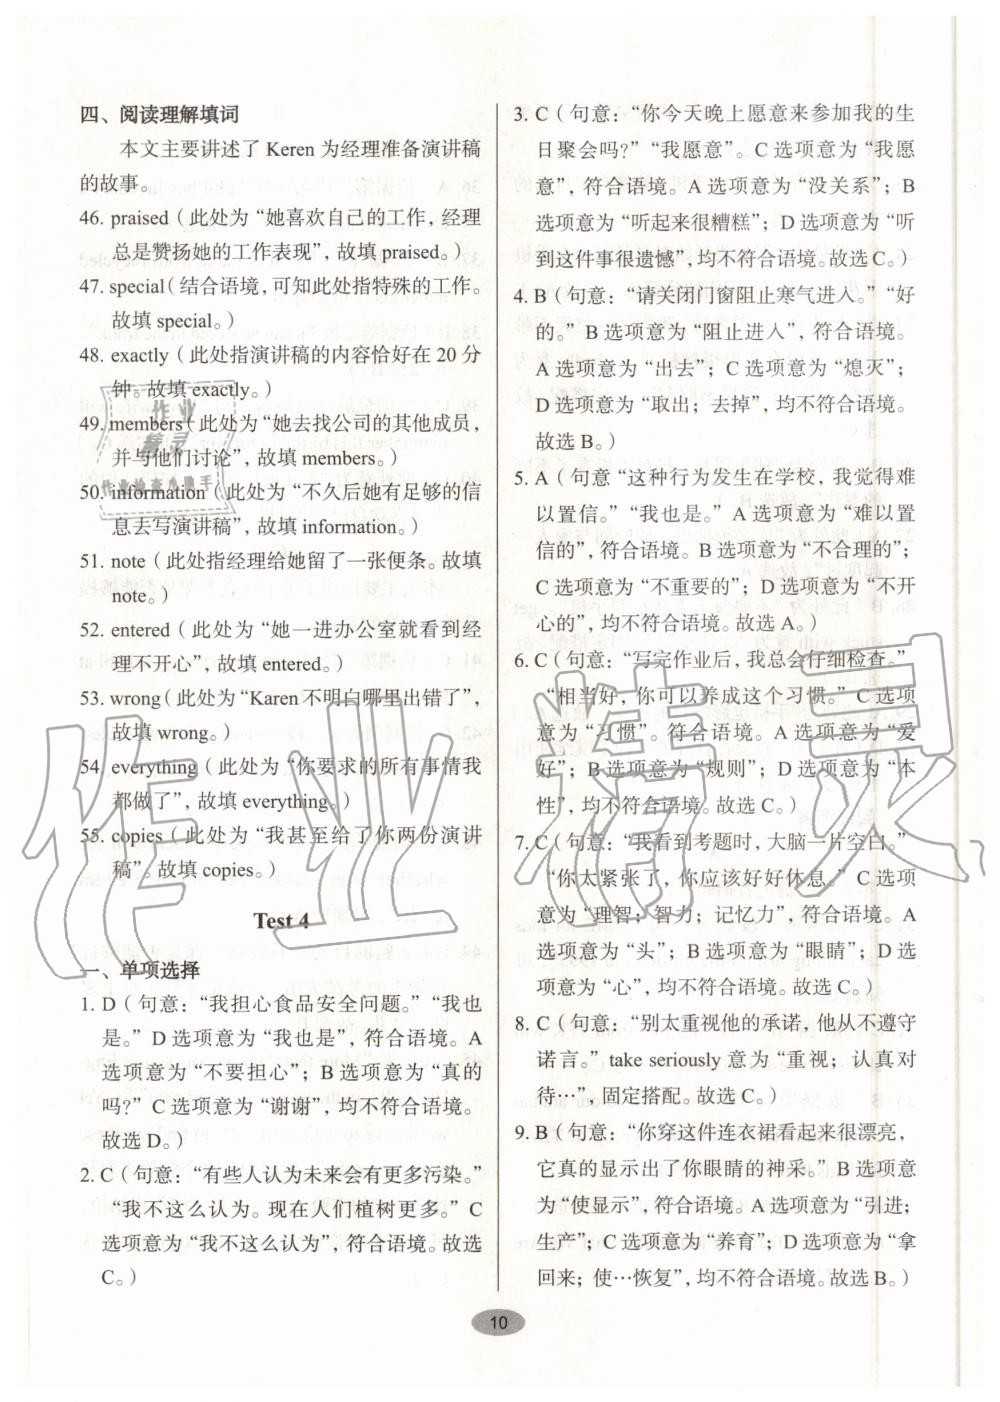 四、阅读理解填词
本文主要讲述了 Keren 为经理准备演讲稿
的故事。
46. praised（此处为“她喜欢自己的工作，经理
总是赞扬她的工作表现”，故填 praised。）
47. special（结合语境，可知此处指特殊的工作。
故填 special。）
48. exactly（此处指演讲稿的内容恰好在 20 分
钟。故填 exactly。）
49. members（此处为“她去找公司的其他成员，
并与他们讨论”，故填 members。）
50. information（此处为“不久后她有足够的信
息去写演讲稿”，故填 information。）
51. note（此处指经理给她留了一张便条。故填
note。）
52. entered（此处为“她一进办公室就看到经
理不开心”，故填 entered。）
53. wrong（此处为“Karen 不明白哪里出错了”，
故填 wrong。）
54. everything（此处为“你要求的所有事情我
都做了”，故填 everything。）
55. copies（此处为“我甚至给了你两份演讲
稿”。故填 copies。）
Test 4
一、单项选择
1. D（句意：“我担心食品安全问题。”“我也
是。” D 选项意为“我也是”，符合语境。A
选项意为“不要担心”；B 选项意为“真的
吗?” C 选项意为“谢谢”，均不符合语境。
故选 D。）
2. C（句意：“有些人认为未来会有更多污染。”
“我不这么认为。现在人们植树更多。” C
选项意为“我不这么认为”，符合语境。故选
C。）
3. C（句意：“你今天晚上愿意来参加我的生
日聚会吗?”“我愿意”。C 选项意为“我愿
意”，符合语境。A 选项意为“没关系”；B
选项意为“听起来很糟糕”；D 选项意为“听
到这件事很遗憾”，均不符合语境。故选 C。）
4. B（句意：“请关闭门窗阻止寒气进入。”“好
的。” B 选项意为“阻止进入”，符合语境。
A 选项意为“出去”；C 选项意为“熄灭”；
D 选项意为“取出；去掉”，均不符合语境。
故选 B。）
5. A（句意“这种行为发生在学校，我觉得难
以置信。”“我也是。” A 选项意为“难以置
信的”，符合语境。B 选项意为“不合理的”；
C 选项意为“不重要的”；D 选项意为“不开
心的”，均不符合语境。故选 A。）
6. C（句意：“写完作业后，我总会仔细检查。”
“相当好，你可以养成这个习惯。” C 选项
意为“习惯”。符合语境。A 选项意为“爱
好”；B 选项意为“规则”；D 选项意为“本
性”，均不符合语境。故选 C。）
7. C（句意：“我看到考题时，大脑一片空白。”
“你太紧张了，你应该好好休息。” C 选项
意为“理智；智力；记忆力”，符合语境。A
选项意为“头”；B 选项意为“眼睛”；D 选
项意为“心”，均不符合语境。故选 C。）
8. C（句意：“别太重视他的承诺，他从不遵守
诺言。” take seriously 意为“重视；认真对
待…”，固定搭配。故选 C。）
9. B（句意：“你穿这件连衣裙看起来很漂亮，
它真的显示出了你眼睛的神采。” B 选项意
为“使显示”，符合语境。A 选项意为“引进；
生产”；C 选项意为“养育”；D 选项意为“拿
回来；使…恢复”，均不符合语境。故选 B。）
10
作业精灵
作业
精灵
作业检查小助手